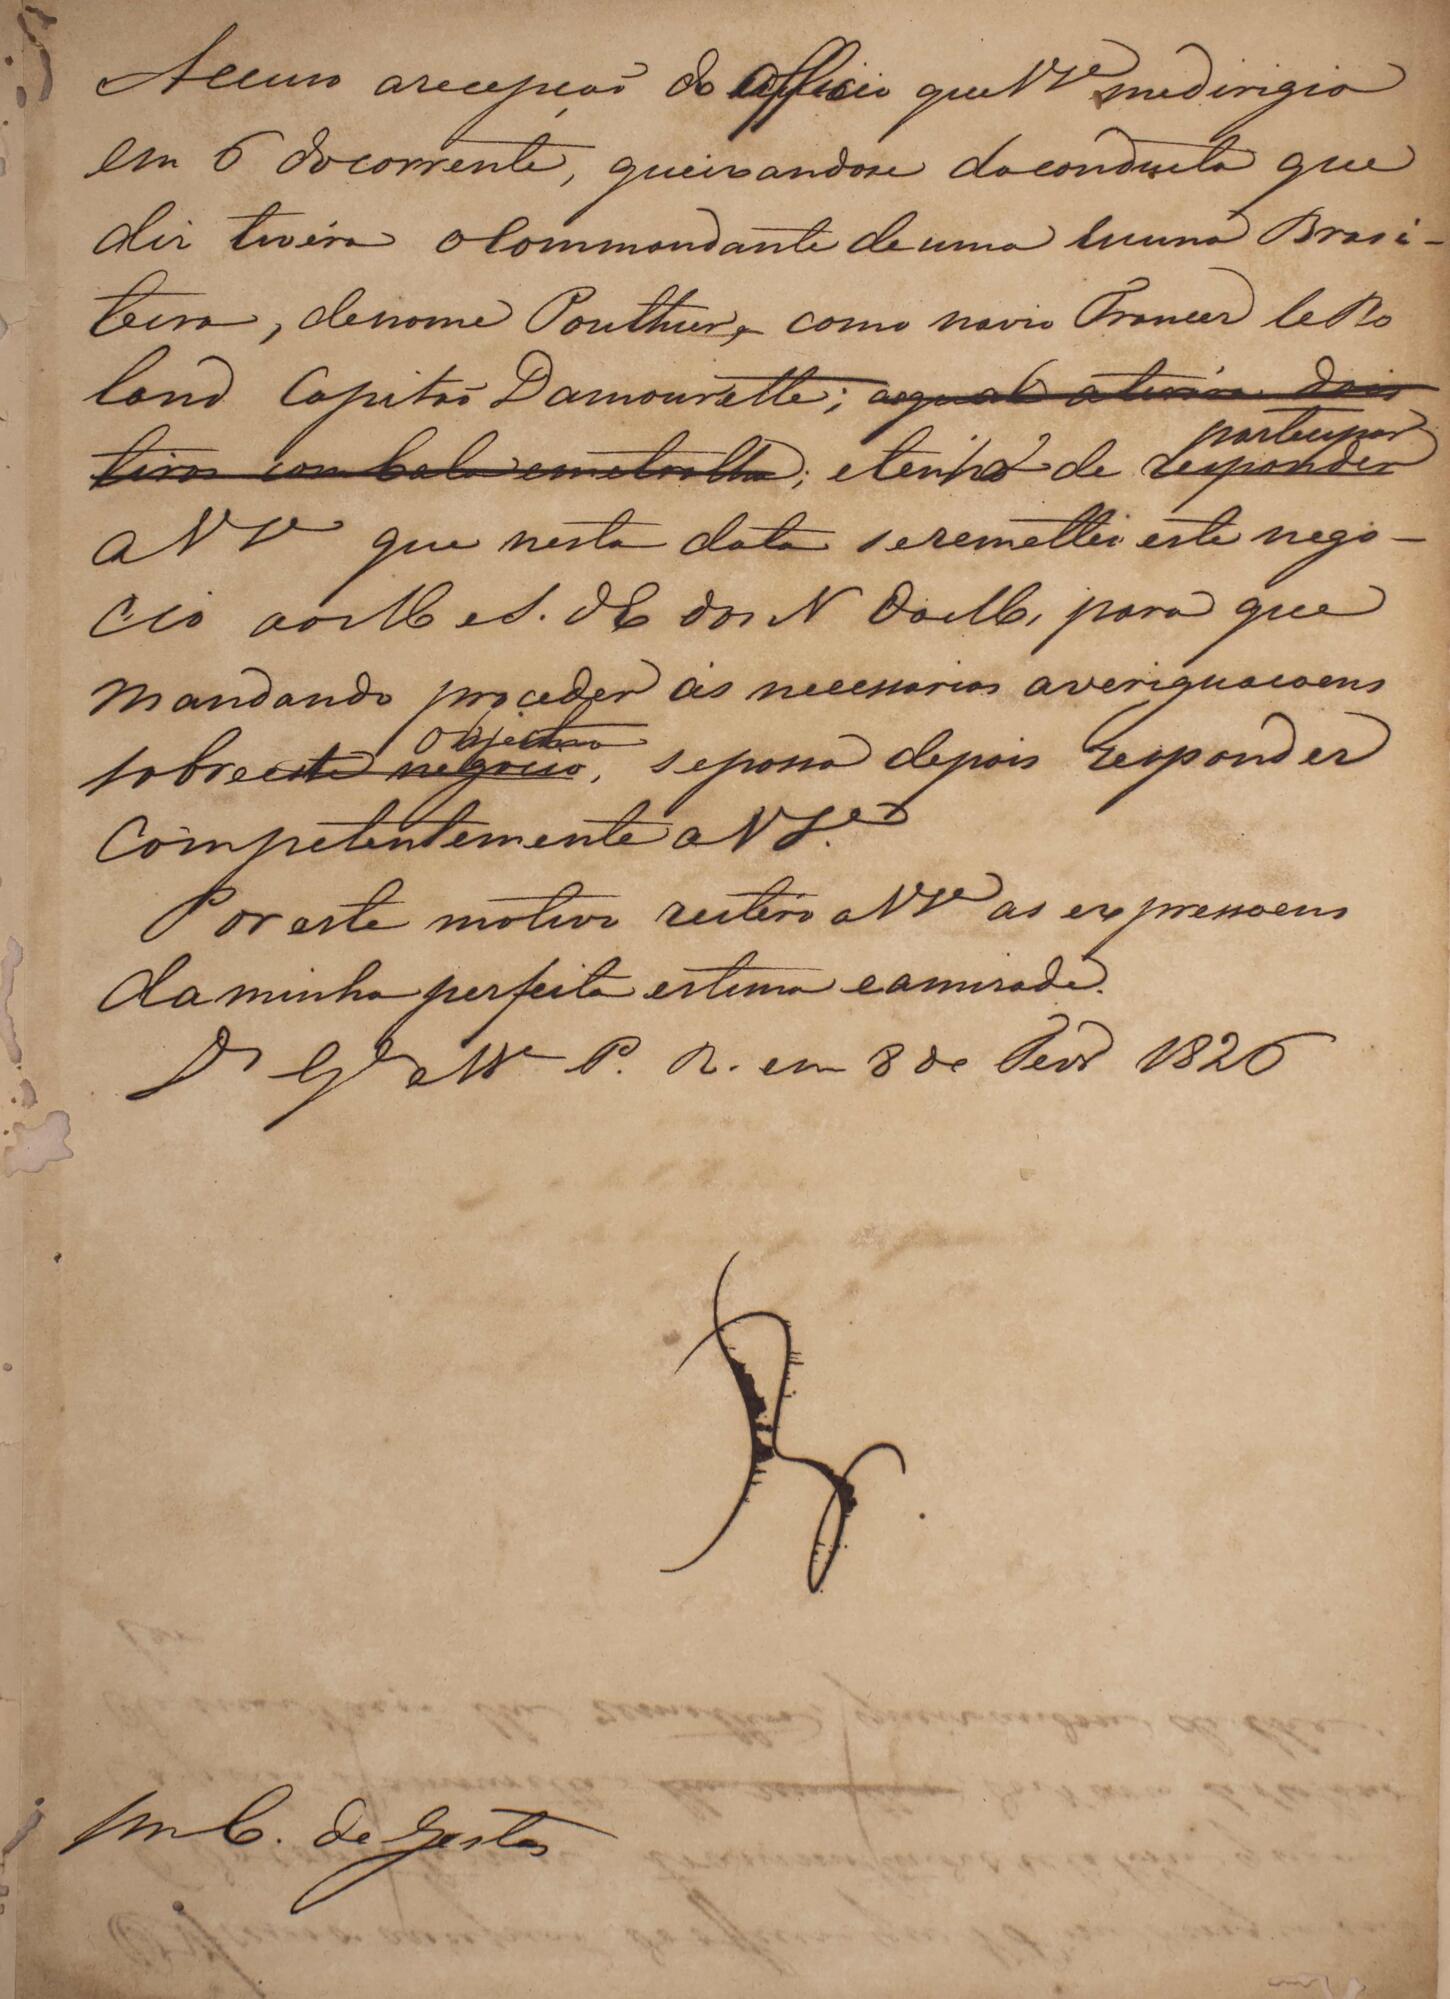 Accuso a recepção do officio que VS.ª me dirigio
em 6 do corrente, queixandose da conducta que
diz tivéra o Commandante de uma Escuna Brasi-
leira, denome Pouthier, como navio Francez le Ro
land Capitão Damourette; aoqual atirára dois
tiros com bala emetralha; e tenho de responder participar
a VS.ª que nesta data se remetteu este nego-
cio ao M e S. d'E dos N da M, para que
mandando proceder ás necessarias averiguacoens
sobre este negocio objecto, se possa depois responder
Competentemente a VS.ª
Por este motivo reitero a VS.ª as expressoens
da minha perfeita estima e amizade.
Ds Gde a VS.ª P. R. em 8 de Fevr 1826
Snr C. de Gestas